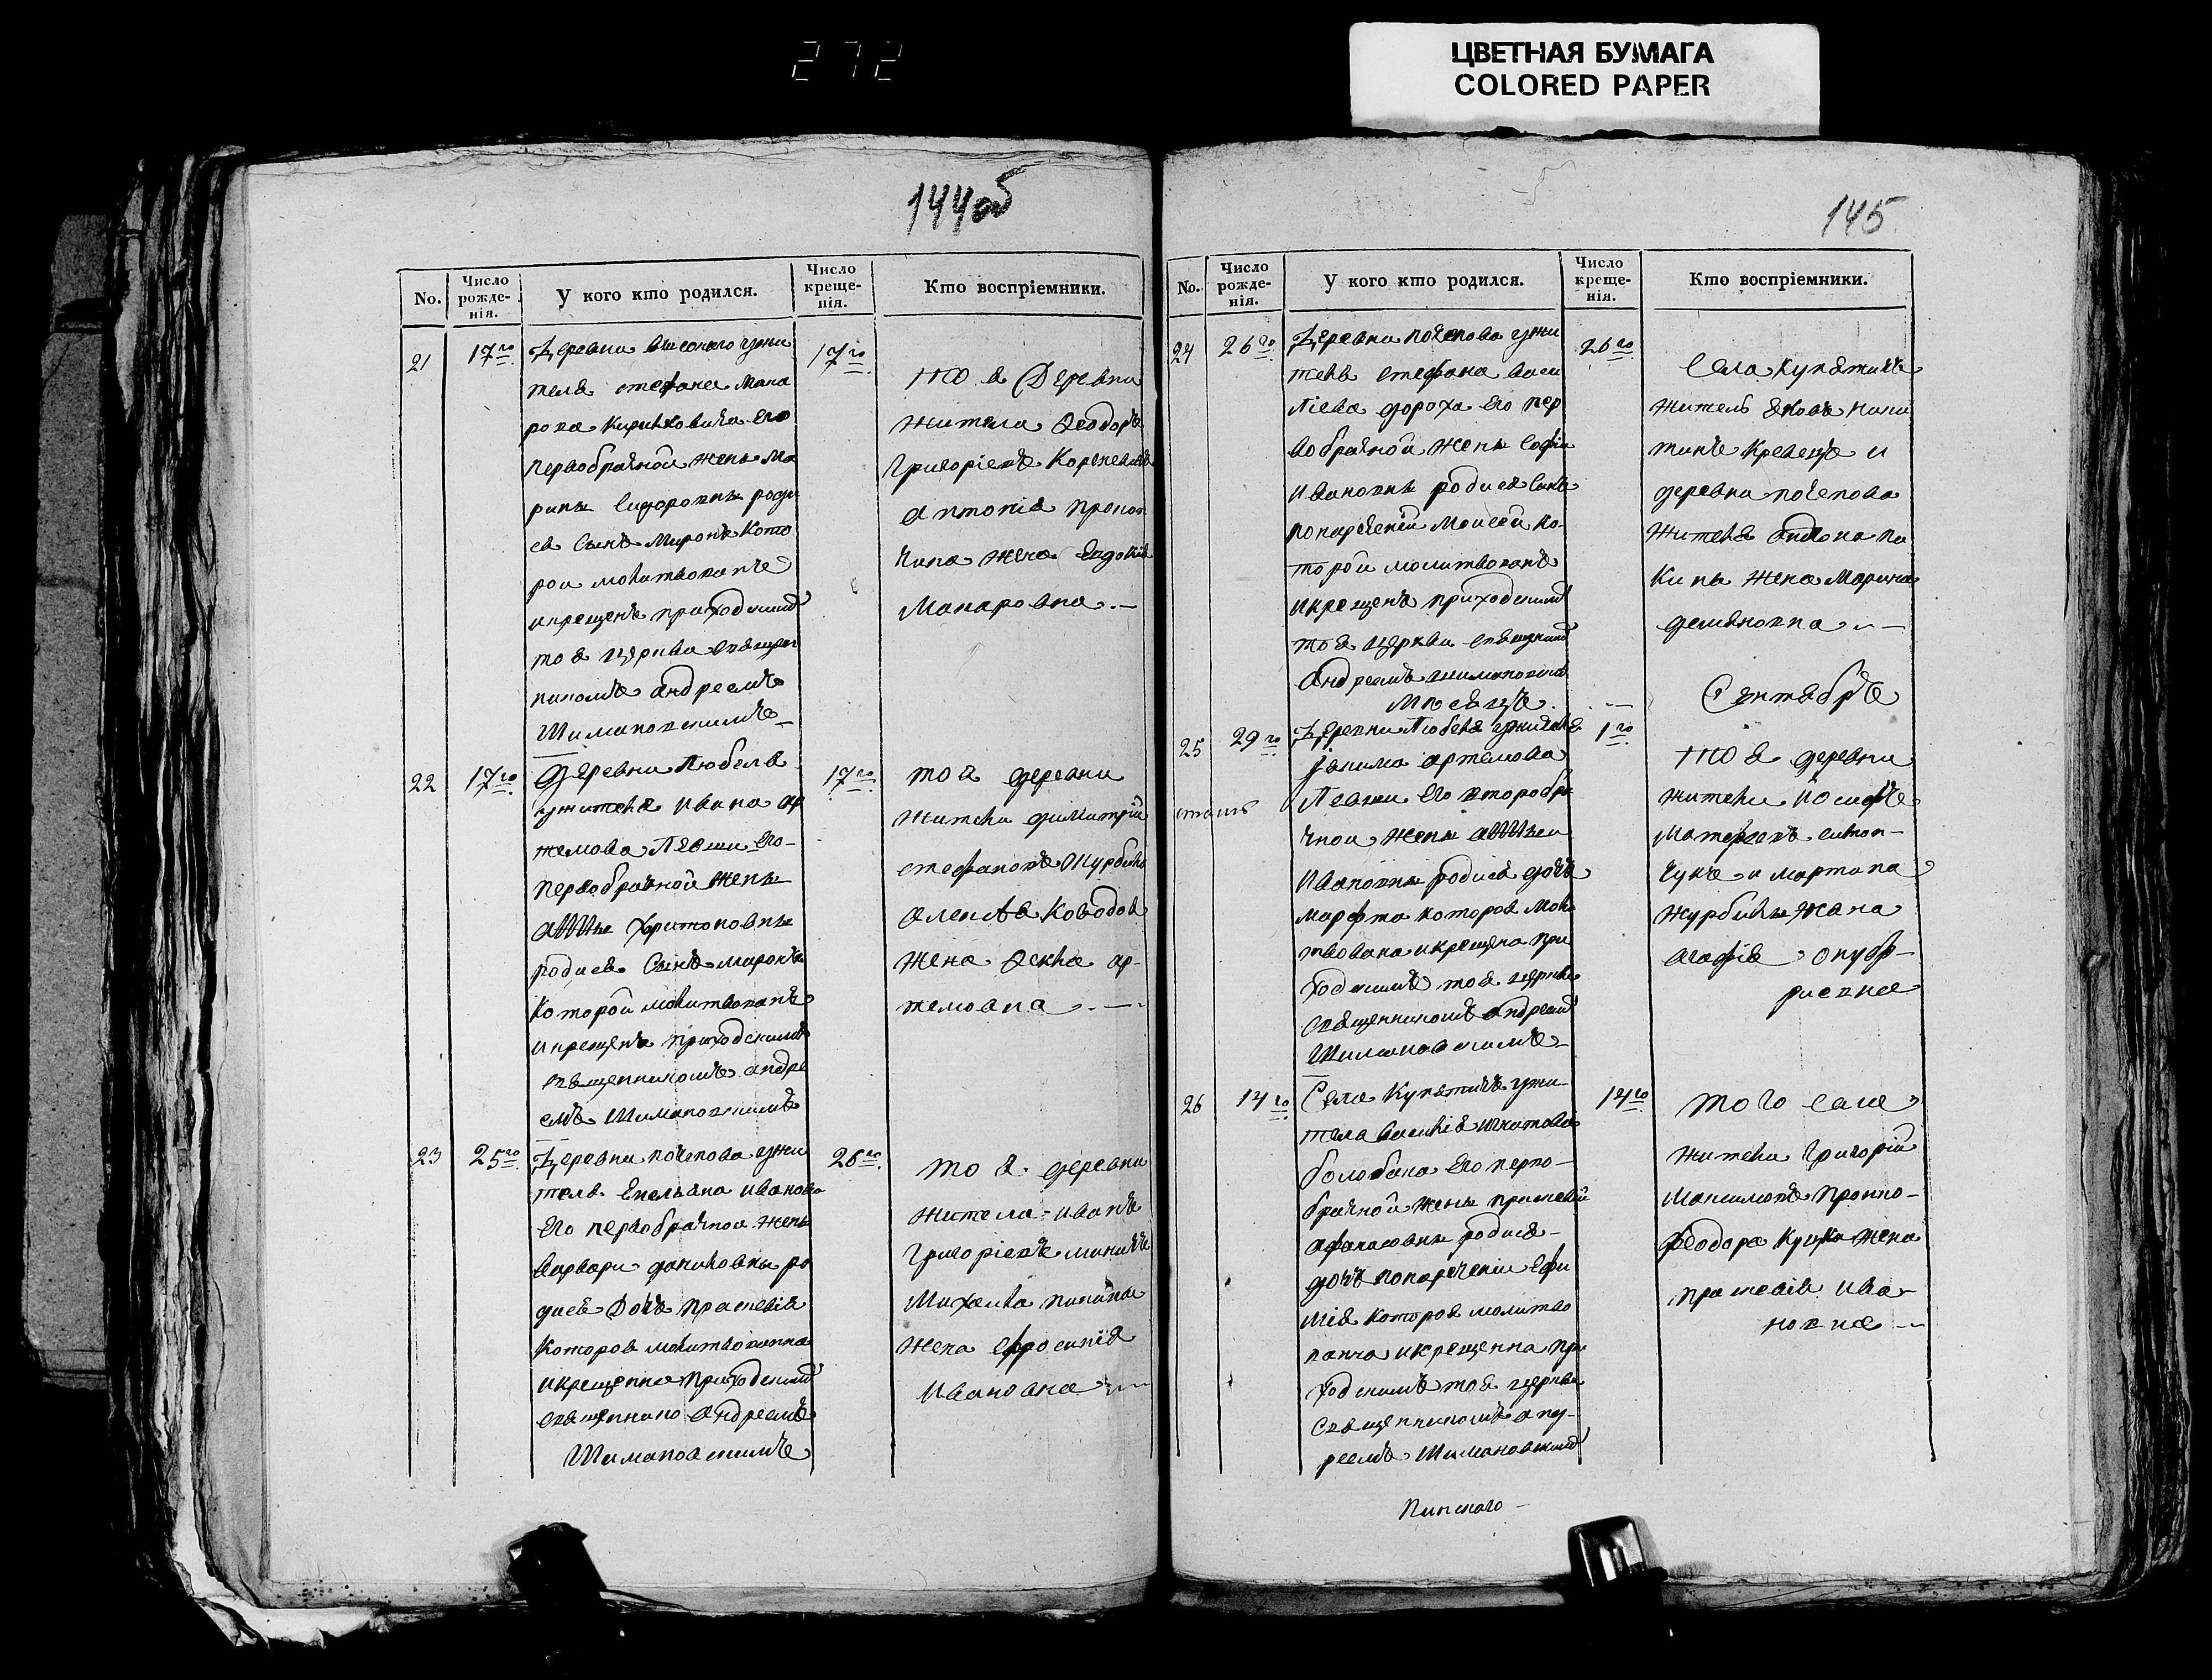 272
ЦВЕТНАЯ БУМАГА
COLORED PAPER
144об
No.
Число рожде- нія.
У кого кто родился.
Число креще- нія.
Кто воспріемники.
21
17го
Деревни Высокаго ужи
теля стефана Мака
рова его
первобрачной жены Ма
рины Сидоровны роди
ся Сынъ Миронъ Кото
рой молитвованъ
икрещенъ приходскимъ
тоя церкви священ
никомъ андреемъ
Шимановскимъ
17го
тоя Деревни
жители Ѳеодоръ
Григоріевъ
антонія
жена Евдокія
Макаровна .—
22
17го
Деревни Любель
ужителя Ивана ар
темова Левши Его
первобрачной жены
Харитоновны
родися Сынъ миронъ
Которой молитвованъ
икрещенъ приходскимъ
священникомъ андре
емъ Шимановскимъ
17го
тоя деревни
жители димитрій
стефановъ
жена Ѳекла ар-
темовна .—
23
25го
Деревни почепова ужи
теля Емельяна иванова
Его первобрачной жены
варвары даниловны ро
дись Дочь праскевія
Которая молитвованна
икрещенна приходскимъ
священнико андреемъ
Шимановскимъ
26го
тоя деревни
жители иванъ
Григоріевъ
Михаила
жена ефросинія
Ивановна
145
No.
Число рожде- нія.
У кого кто родился.
Число креще- нія.
Кто воспріемники.
24
26го
Деревни почепова ужи
теля стефана васи
лієва дороха Его пер
вобрачной жены Софіи
Ивановны родися Сынъ
понареченій Моисей Ко-
торой молитвованъ
икрещенъ приходскимъ
тоя церкви священикомъ
Андреемъ шимановскимъ
Мѣсяцъ
26го
Села Купятичъ
житель Яковъ Ники
тинъ Кревецъ и
деревни почепова
жителя
жена Марина
демяновна —
Сентябрь
25
29го
Деревни Любель ужителя
Іакима артемова
Левши Его второбра
чной жены
Ивановны родись дочь
марфта которая моли
твована икрещена при
ходскимъ тоя церкви
священникомъ андреемъ
Шимановскимъ
1го
тоя деревни
жители іосифъ
и мартина
журбилы жена
агафія онуфр-
риевна
26
14го
Села Купятичъ ужи
теля василія игнатова
болобана Его перво-
брачной жены праскевіи
афанасовны родися
дочь понареченіи Ефи
мія которая молитво
ванна икрещенна при
ходскимъ тоя церкви
Священникомъ анд-
реемъ Шимановскимъ
14го
того села
жители Григорій
Максимовъ
феодора жена
праскевія ива-
новна —
Пинскаго —